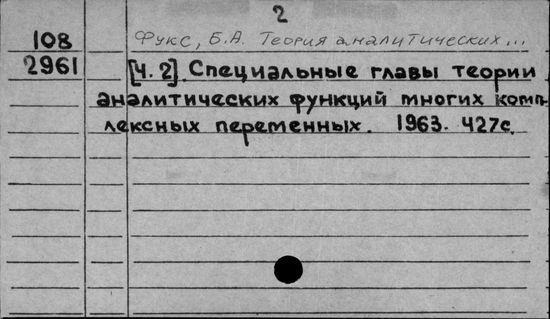 2
108 Фукс, Б.А. Теория аналитических...
2961 [Ч. 2]. Специальные главы теории
аналитических функций многих комп-
лексных переменных. 1963. 427с.